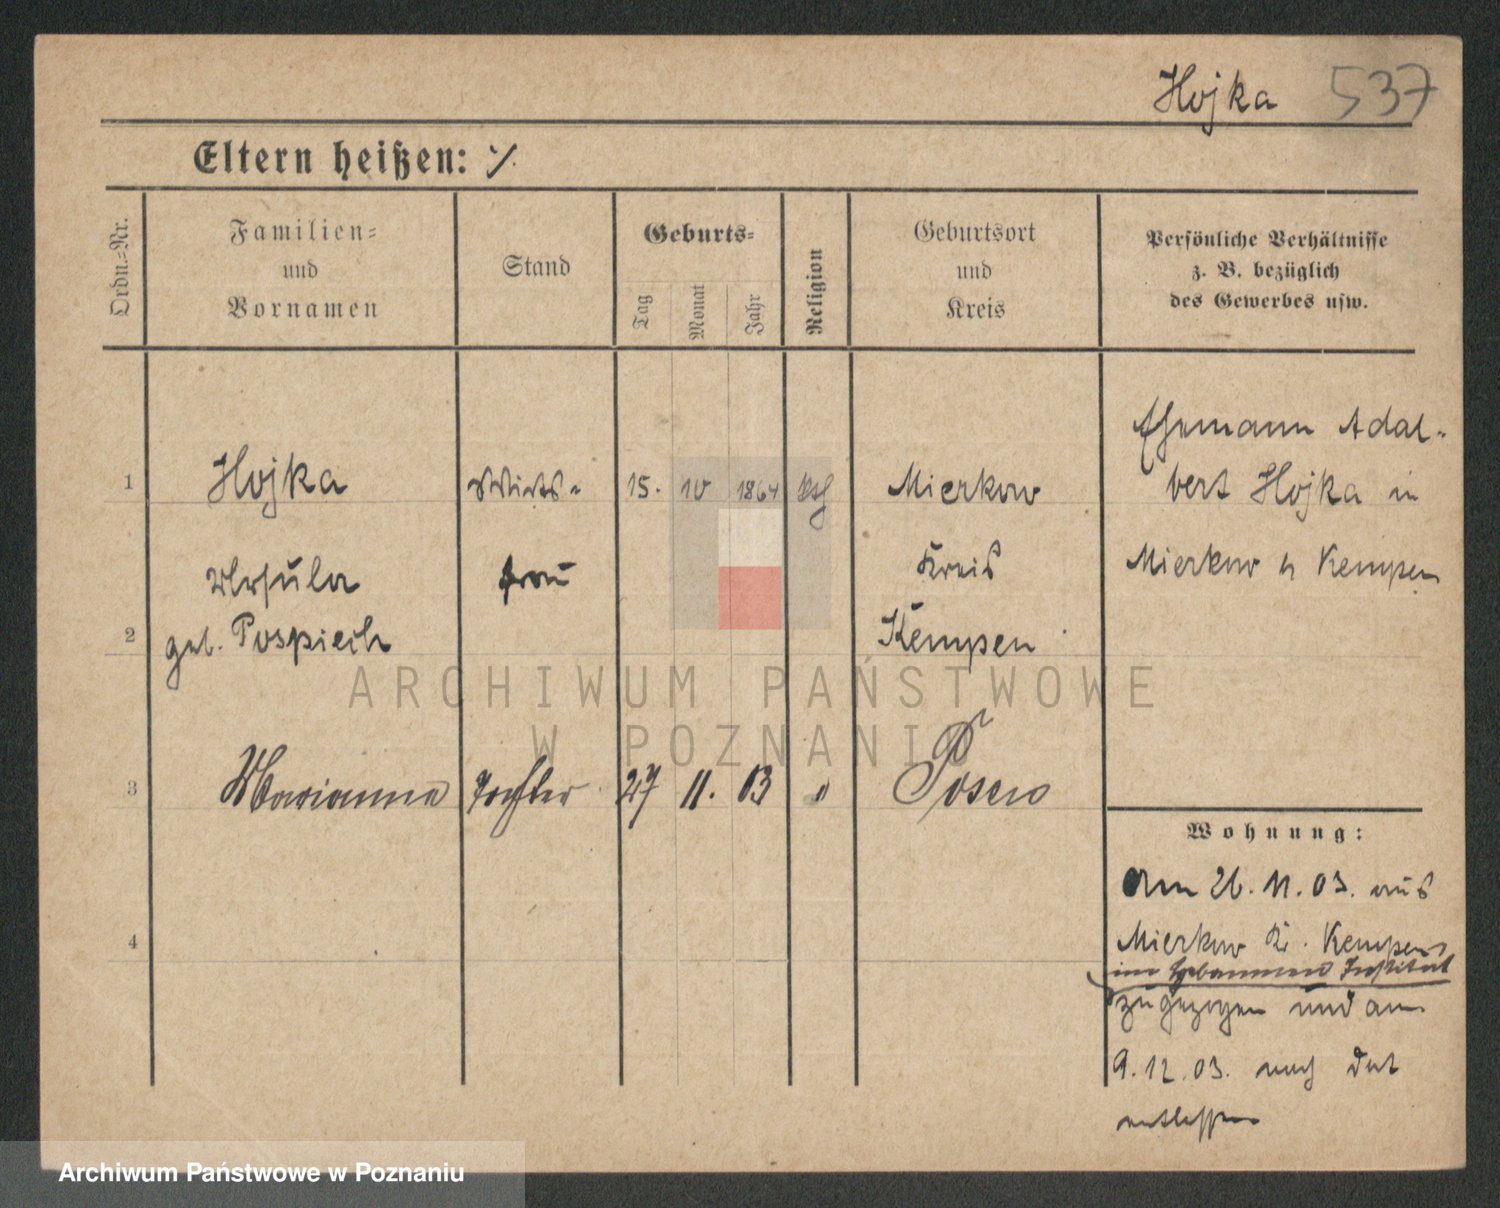 Hojka 537
Eltern heißen: ⁒
Ordn.-Nr.
Familien-
und
Vornamen
Stand
Geburts-
Tag
Monat
Jahr
Religion
Geburtsort
und
Kreis
Persönliche Verhältnisse
z. B. bezüglich
des Gewerbes usw.
Ehemann Adal-
bert Hojka in
Mierkow Kempen
1 Hojka Wirts- 15. 10 1864 ktf Mierkow
Ursula frau Kreis
2 geb. Pospiech Kempen
3 Marianna Tochter 27 11. 03 " Posen
4
Wohnung:
Am 26. 11. 03. aus
Mierkow Kr. Kempen
im Hebammen Institut
zugezogen und am
9. 12. 03. nach dort
entlassen
ARCHIWUM PAŃSTWOWE
W POZNANIU
Archiwum Państwowe w Poznaniu